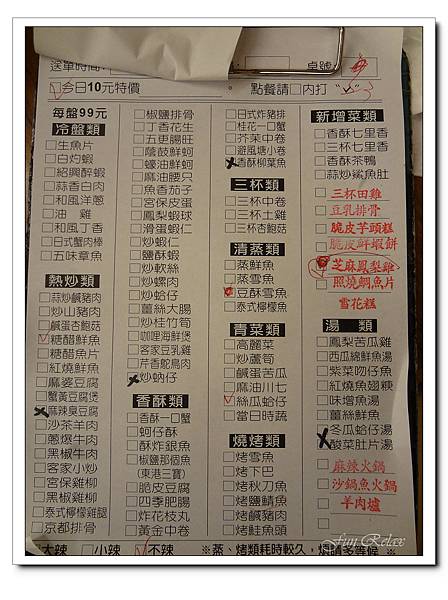 送單時間:
桌號
今日10元特價
點餐請□內打"✓"
每盤99元
冷盤類
□生魚片
□白灼蝦
□紹興醉蝦
□蒜香白肉
□和風洋蔥
□油 雞
□和風丁香
□日式蟹肉棒
□五味章魚
熱炒類
□蒜炒鹹豬肉
□炒山豬肉
□鹹蛋杏鮑菇
□糖醋鮮魚
□糖醋魚片
□紅燒鮮魚
□麻婆豆腐
□蟹黃豆腐煲
□麻辣臭豆腐
□沙茶羊肉
□蔥爆牛肉
□黑椒牛肉
□客家小炒
□宮保雞柳
□黑椒雞柳
□泰式檸檬雞腿
□京都排骨
□椒鹽排骨
□丁香花生
□五更腸旺
□蔭鼓鮮蚵
□蠔油鮮蚵
□麻油腰只
□魚香茄子
□宮保皮蛋
□鳳梨蝦球
□滑蛋蝦仁
□炒蝦仁
□鹽酥蝦
□炒軟絲
□炒螺肉
□炒蛤仔
□薑絲大腸
□炒桂竹筍
□咖哩海鮮煲
□客家豆乳雞
□芹香鴕鳥肉
□炒蚋仔
香酥類
□香酥一口蟹
□蚵仔酥
□酥炸銀魚
□椒鹽那個魚
(東港三寶)
□脆皮豆腐
□四季肥腸
□炸花枝丸
□黃金中卷
□日式炸豬排
□桂花一口蟹
□芥茉中卷
□避風塘小卷
□香酥柳葉魚
三杯類
□三杯中卷
□三杯土雞
□三杯杏鮑菇
清蒸類
□蒸鮮魚
□蒸雪魚
□豆酥雪魚
□泰式檸檬魚
青菜類
□高麗菜
□炒蘆筍
□鹹蛋苦瓜
□麻油川七
□絲瓜蛤仔
□當日時蔬
燒烤類
□烤雪魚
□烤下巴
□烤秋刀魚
□烤鹽鯖魚
□烤鹹豬肉
□烤鮭魚頭
新增菜類
□香酥七里香
□三杯七里香
□香酥茶鴨
□蒜炒鯊魚肚
□三杯田雞
□豆乳排骨
□脆皮芋頭糕
□脆皮鮮蝦餅
□芝麻鳳梨雞
□照燒鯛魚片
雪花糕
湯 類
□鳳梨苦瓜雞
□西瓜綿鮮魚湯
□紫菜吻仔魚
□紅燒魚翅粳
□味增魚湯
□薑絲鮮魚
□冬瓜蛤仔湯
□酸菜肚片湯
□麻辣火鍋
□沙鍋魚火鍋
□羊肉爐
□大辣 □小辣 □不辣
※蒸、烤類耗時較久,煩請多等候 ※
Fun Relax